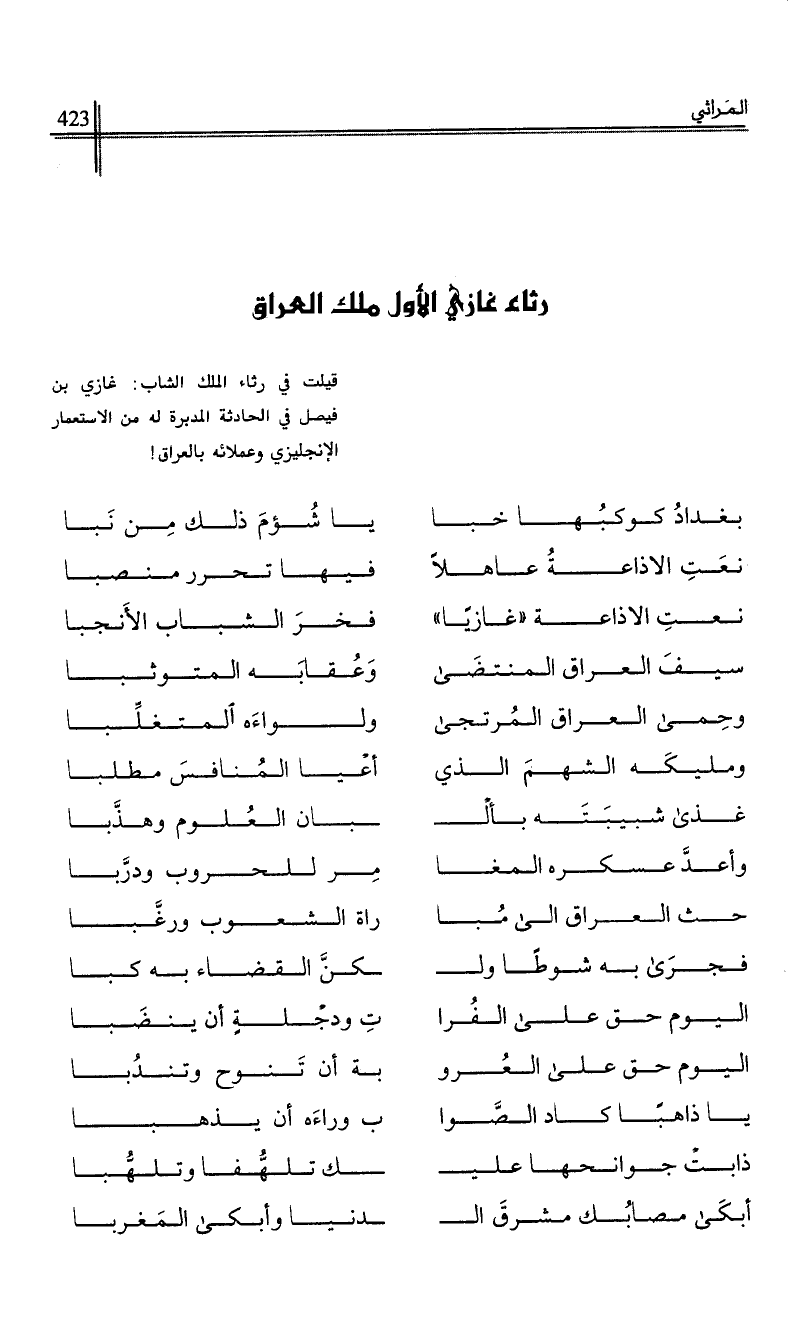 المَراثي
423
رثاء غازي الأول ملك العراق
قيلت في رثاء الملك الشاب: غازي بن
فيصل في الحادثة المدبرة له من الاستعمار
الإنجليزي وعملائه بالعراق!
بغدادُ كوكبُهـا خبـا يـا شُـؤمَ ذلـك مِـن نَبـا
نعَـتِ الاذاعـةُ عاهـلاً فيهـا تحـرر منصبـا
نعـتِ الاذاعـة «غازيًـا» فخـرَ الشبـاب الأَنجبـا
سيـفَ العـراق المنتضَـىٰ وَعُقـابَـه المتوثبـا
وحِمـىٰ العـراق المُرتجـىٰ ولـواءَه ٱلمتغلِّبـا
ومليكَـه الشهـمَ الـذي أعْيـا المُنافـسَ مطلبـا
غـذىٰ شبيبَتَـه بـألْـ ـبـان العُلـوم وهذَّبـا
وأعـدَّ عسكـره المغـا مِـر للحـروب ودرَّبـا
حـث العـراق الـىٰ مُبـا راة الشعـوب ورغَّبـا
فجـرَىٰ بـه شوطًـا ولـ ـكـنَّ القضـاء بـه كبـا
اليـوم حـق علـىٰ الفُـرا تِ ودجْلـةٍ أن ينضَبـا
اليـوم حـق علـىٰ العُـرو بـة أن تَنـوح وتندُبـا
يـا ذاهبًـا كـاد الصَّـوا ب وراءَه أن يذهبـا
ذابـتْ جوانحهـا عليـ ـك تلهُّفـا وتلهُّبـا
أبكَـىٰ مصابُـك مشرقَ الـ ـدنيـا وأبكـىٰ المَغربـا